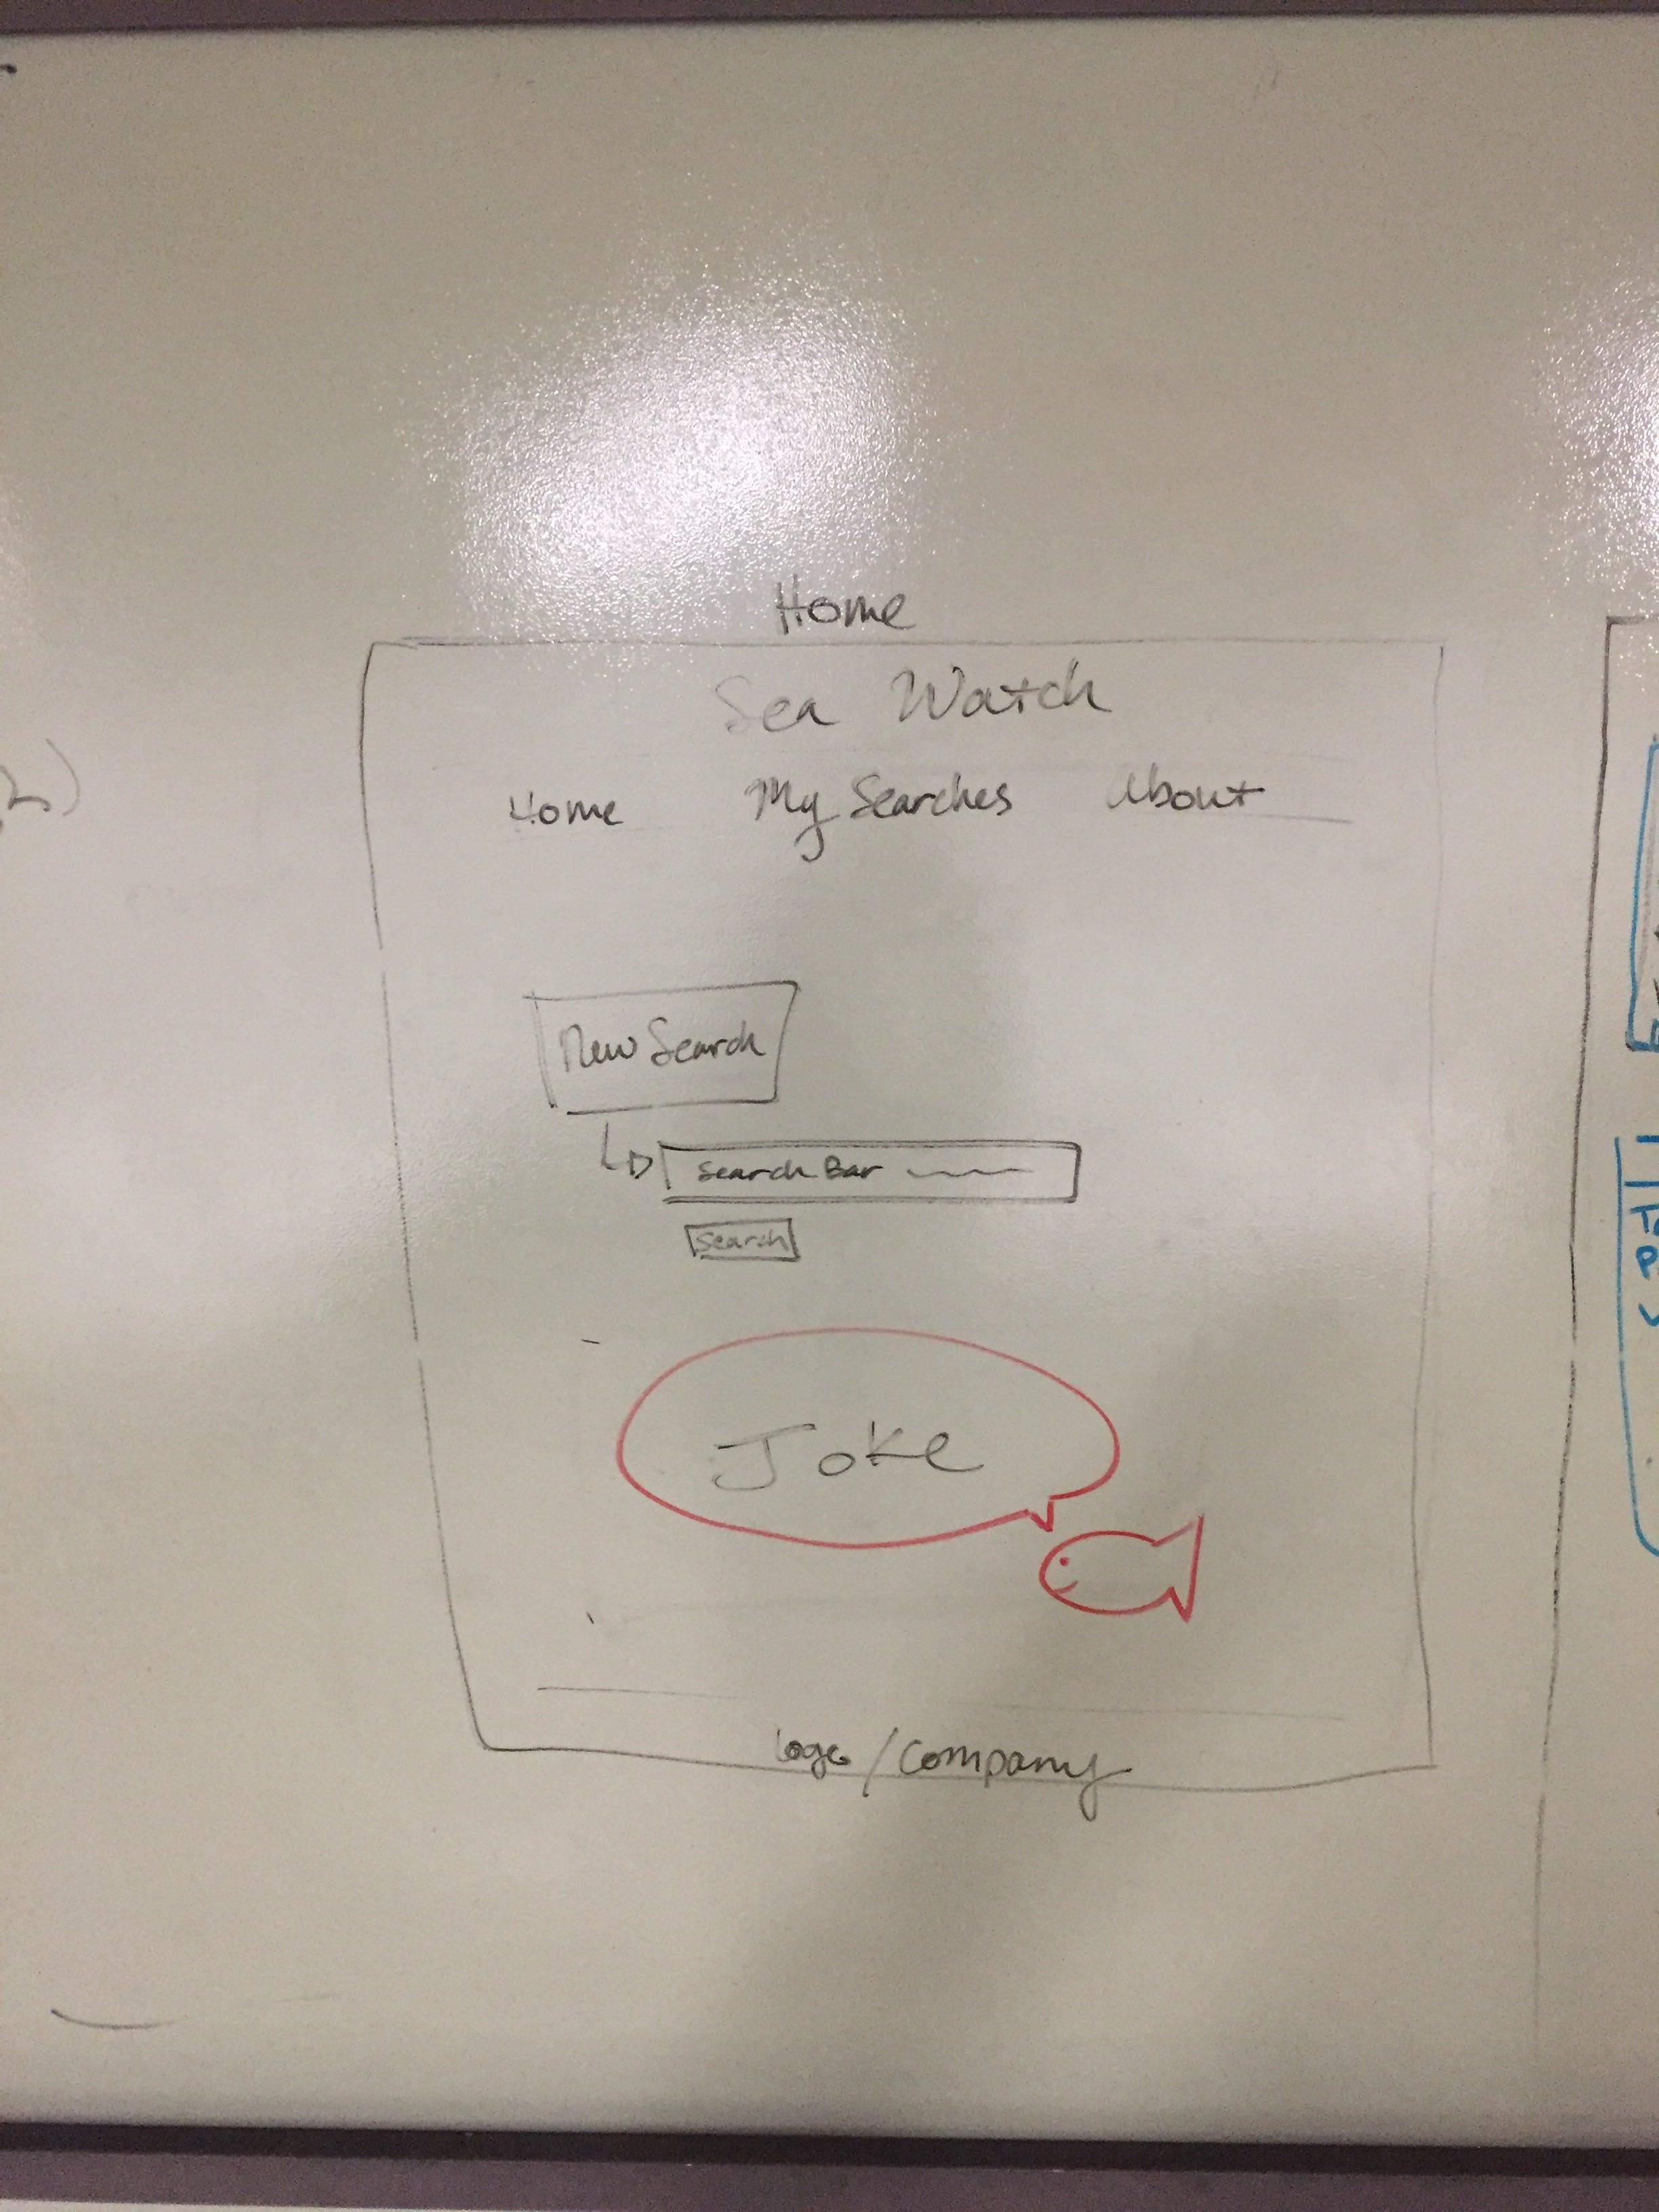 Home
Sea Watch
Home My Searches About
New Search
Search Bar
Search
Joke
Logo/Company